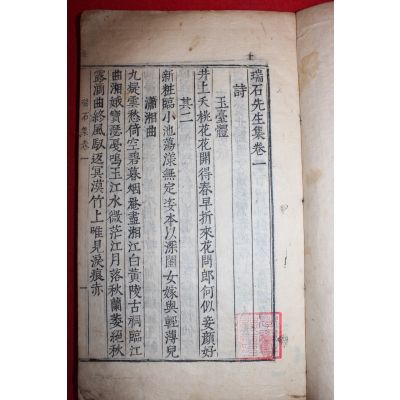 瑞石先生集卷一
詩
玉臺體
井上夭桃花花開得春早折來花問郎何似妾顏好
其二
新粧臨小池蕩漾無定姿本以深閨女嫁與輕薄兒
瀟湘曲
九嶷雲愁倚空碧暮烟愁盡湘江白黃陵古祠臨江
曲湘娥寶瑟戞鳴玉江水微茫江月落秋蘭萎絕秋
露滴曲終風馭返冥漠竹上唯見淚痕赤
瑞石集卷一
一